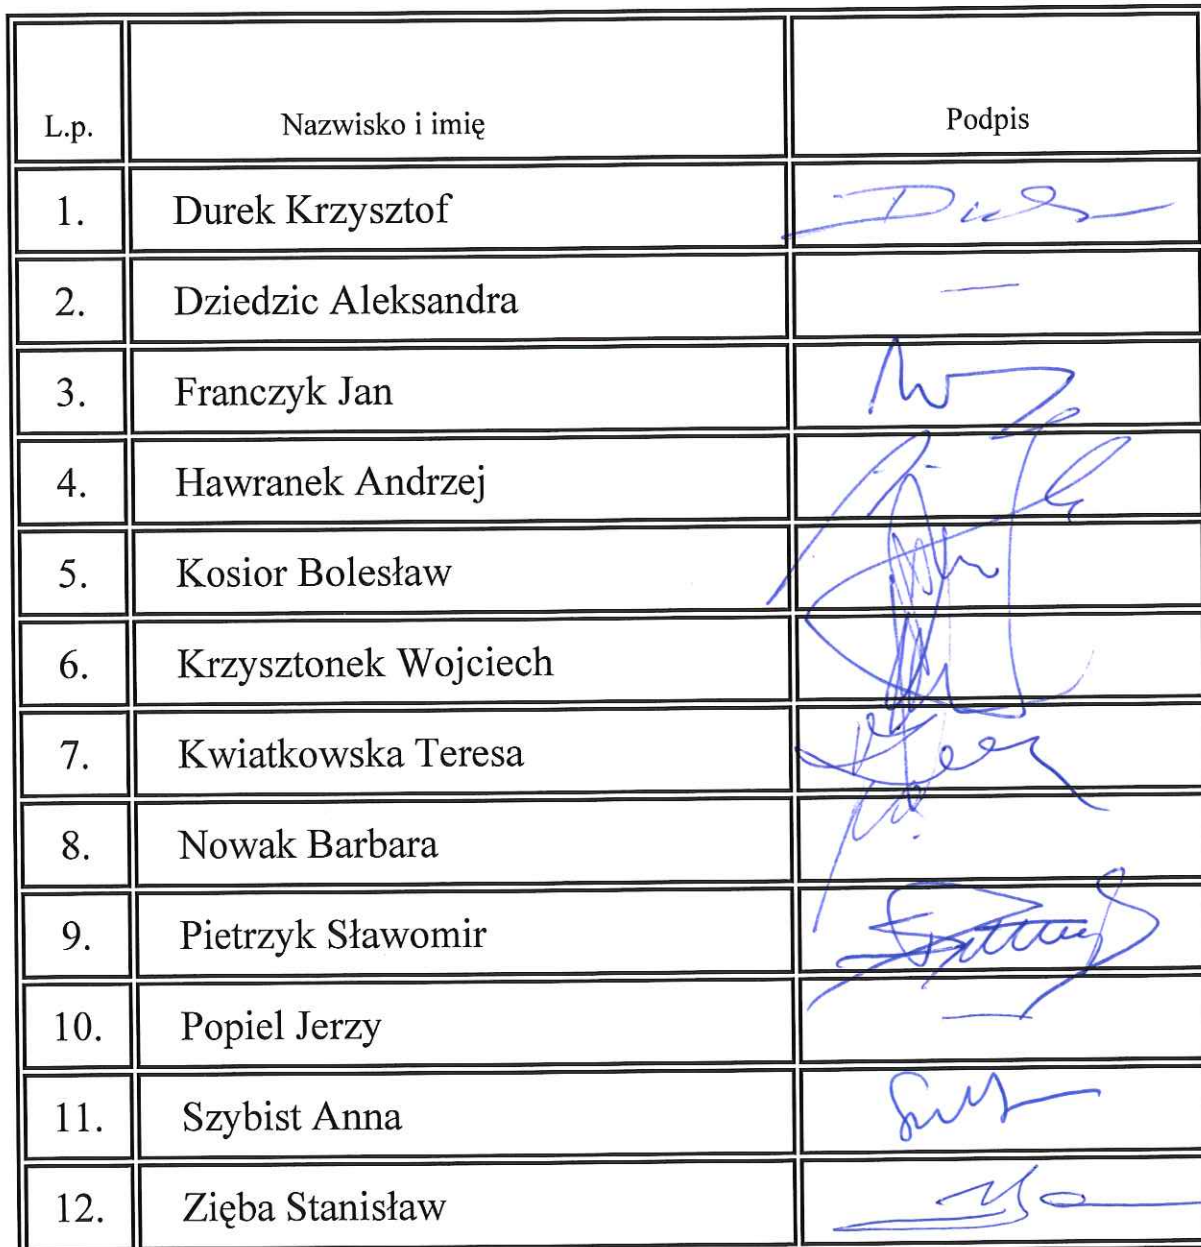 L.p. Nazwisko i imię Podpis
1. Durek Krzysztof
2. Dziedzic Aleksandra —
3. Franczyk Jan
4. Hawranek Andrzej
5. Kosior Bolesław
6. Krzysztonek Wojciech
7. Kwiatkowska Teresa
8. Nowak Barbara
9. Pietrzyk Sławomir
10. Popiel Jerzy —
11. Szybist Anna
12. Zięba Stanisław